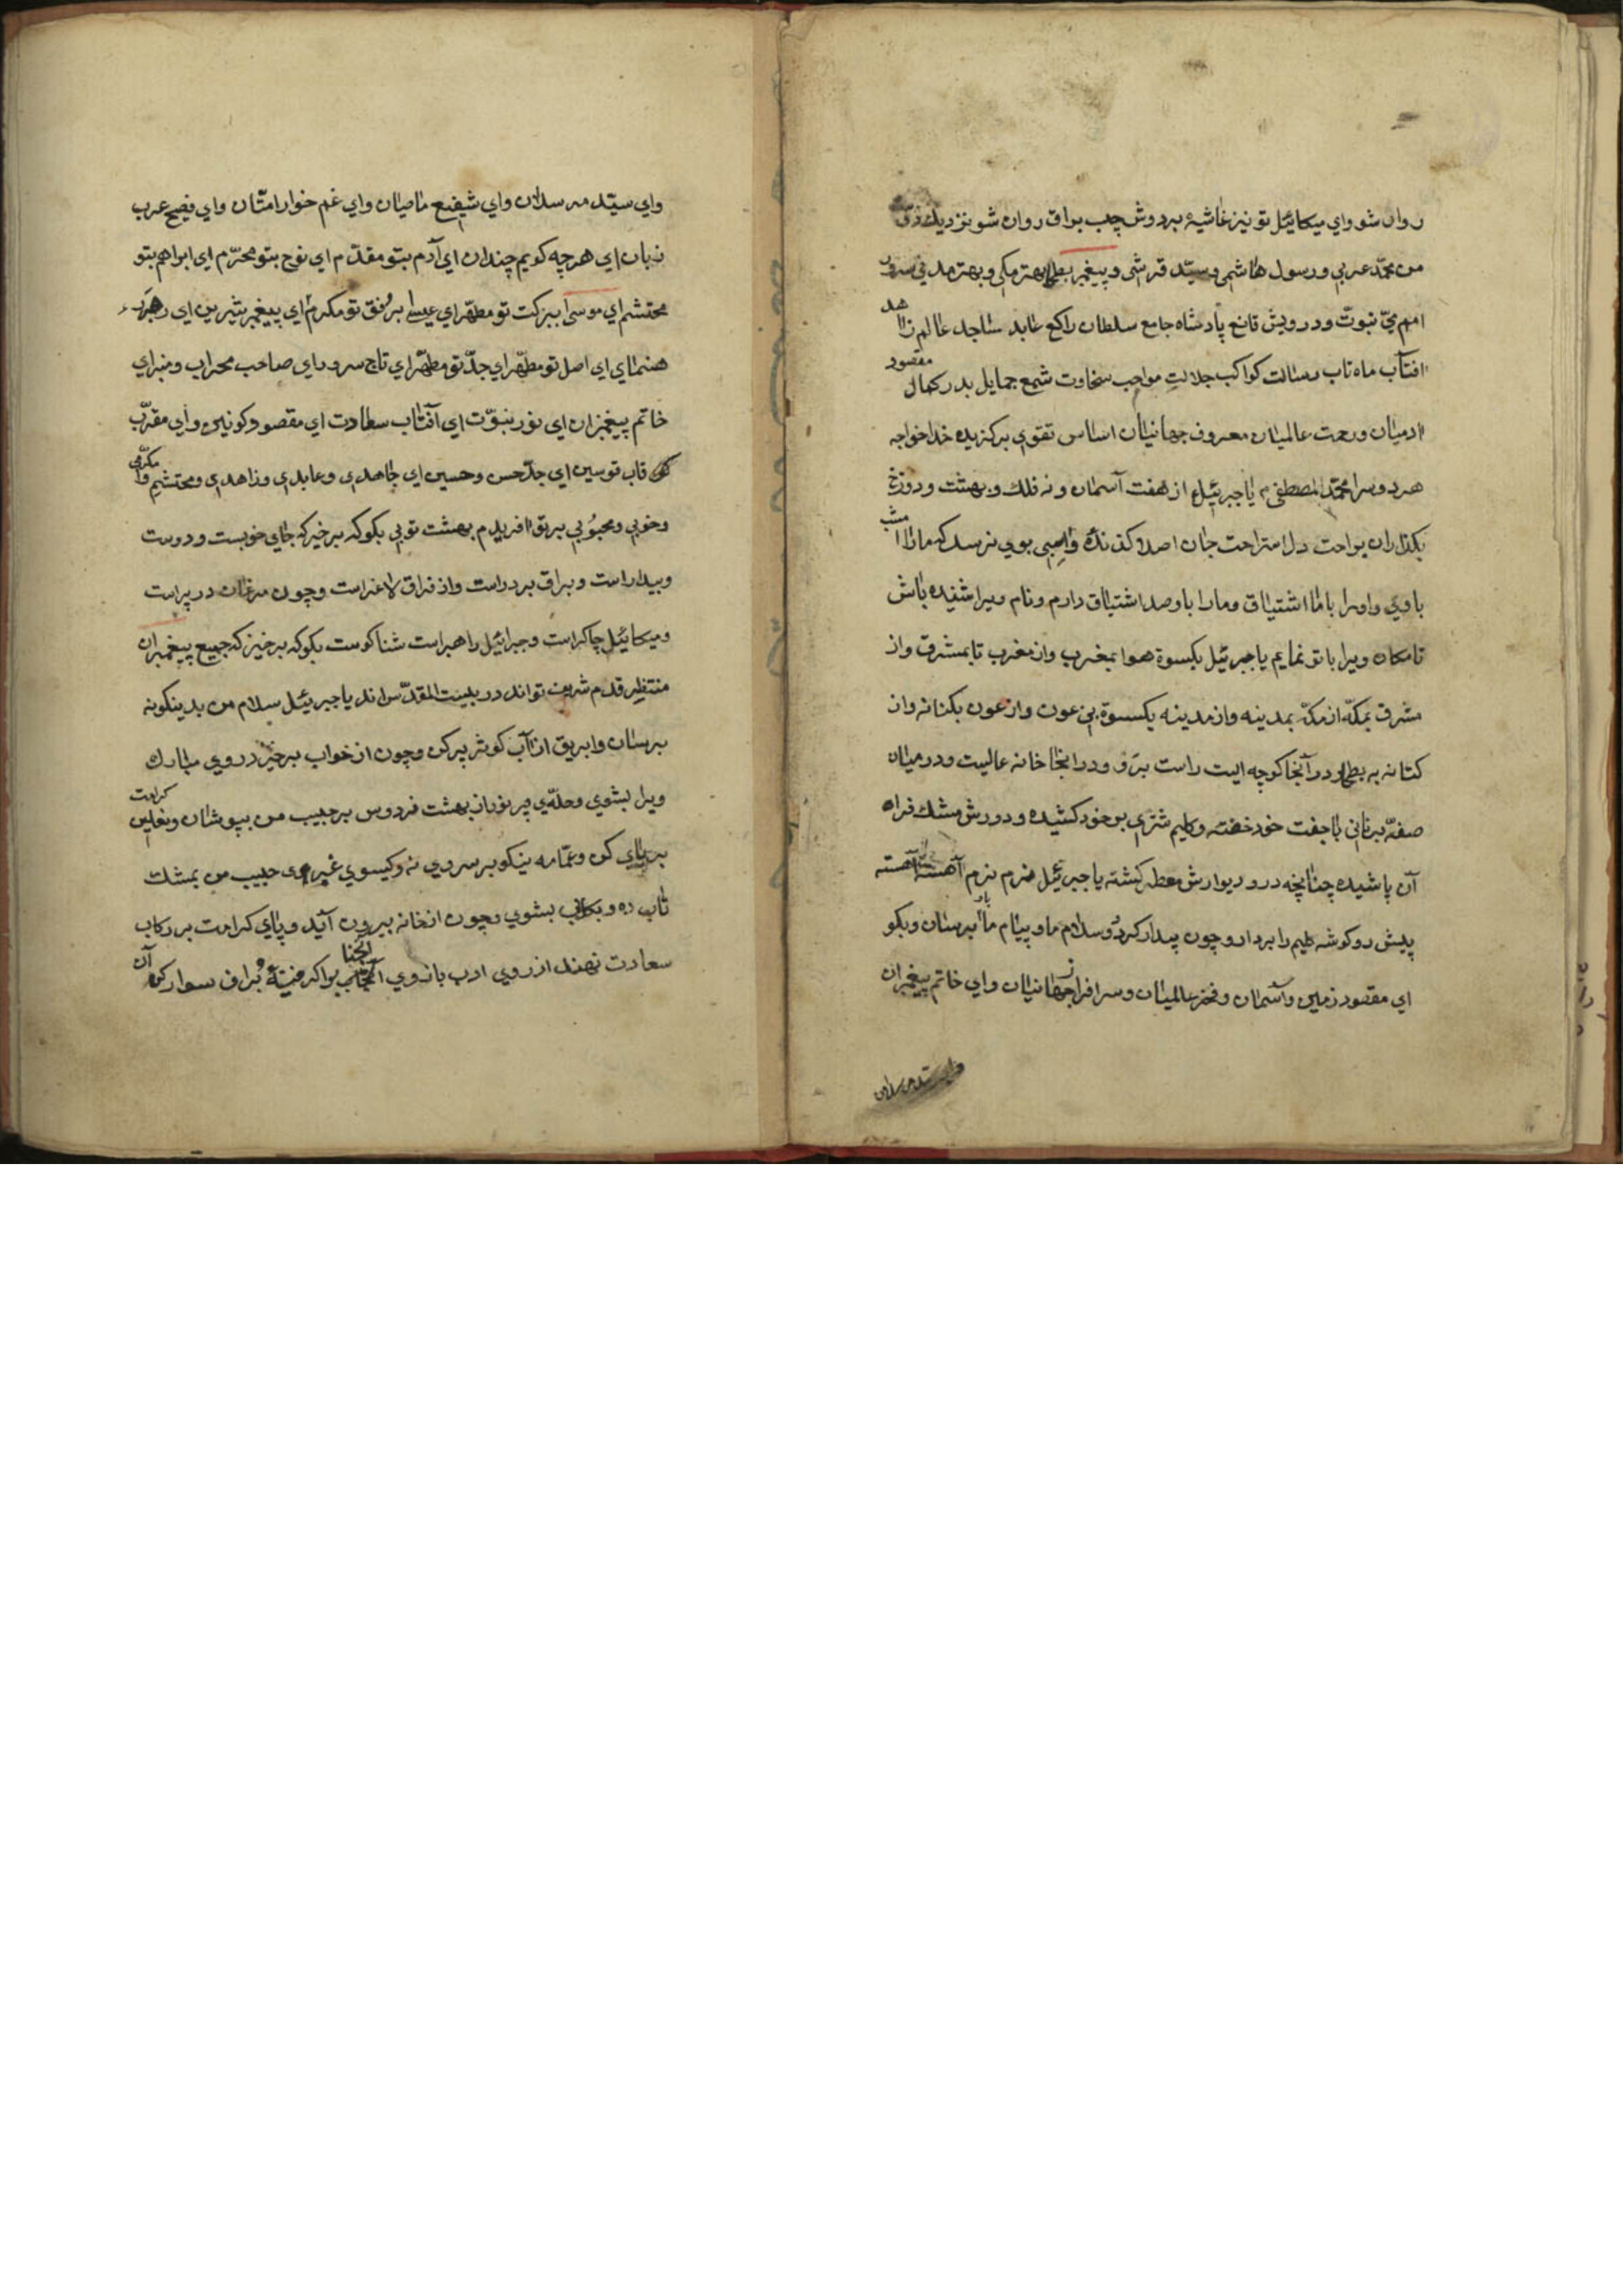 روان شو واي ميكائيل تو نيز غاشيه بردوش چپ براق روان شو نزديك
من محمّد عربي ورسول هاشمي وسيّد قرشي وپيغمبر بطحا بهتر مكي وبهتر مدني
نبوّت ودرويش قانع پادشاه جامع سلطان راكع عابد ساجد عالم زاهد
افتاب ماه تاب رسالت كواكب جلالت مواجب سخاوت شمع جمايل بدر كمال مقصود
ادميان ورحمت عالميان معروف جهانيان اساس تقوي بركزيده خدا خواجه
هر دو سرا محمّد المصطفى م يا جبرئيل از هفت آسمان ونه فلك وبهشت ودوزخ
بكذران براحت دل استراحت جان اصلا كزنده واسيبي بوي نرسد كه ما را امشب
با وي واو را با ما اشتياق وما را با وصد اشتياق دارم ونام ويرا شفيده باش
تا مكان ويرا با تو نمايم يا جبرئيل بكسوة هوا بمغرب واز مغرب تا بمشرق واز
مشرق بمكّه از مكّه بمدينه واز مدينه يكسوة بني عون واز عون بكنانه واز
كنانه به بطحا ودر آنجا كوچه ايست راست برو ودر انجا خانه عاليست ودر ميان
صفّه برناني با جفت خود خفته وكليم شتري بر خود كشيده ودورش مشك فراه
آن پاشيده چنانچه در وديوارش معطر كشته يا جبرئيل نرم نرم آهسته آهسته
پيش رو كوشه كليم را بردار وچون بيدار كردد وسلام ما وپيام ما باو برسان وبكو
اي مقصود زمين وآسمان وفخر عالميان وسرافراز جهانيان واي خاتم پيغمبران
واي سيّد مرسلان
واي سيّد مرسلان واي شفيع عاصيان واي غم خوار امتان واي فصيح عرب
زبان اي هرچه كويم چندان اي آدم بتو مقدّم اي نوح بتو محترّم اي ابراهم بتو
محتشم اي موسى ببركت تو مطهّر اي عيسى برفق تو مكرم اي پيغمبر بشيرين اي رهبر
هنماي اي اصل تو مطهّر اي جدّ تو مطهّر اي تاج سروراي صاحب محراب ومنبر اي
خاتم پيغمبران اي نور نبوّت اي آفتاب سعادت اي مقصود كونين واي مقرّب
قاب قوسين اي جدّ حسن وحسين اي جاهدي وعابدي وزاهدي ومحتشمي ومكرّمي
وخوبي ومحبوبي بر تو افريدم بهشت توبي بكو كه برخيز كه جاي خوبست ودوست
وبيدار است وبراق بر در است واز فراق لاغر است وچون مرغان در پر است
وميكائيل چاكر است وجبرائيل راهبر است ثنا كوست بكو كه برخيز كه جميع پيغمبران
منتظر قدم شريف تواند در بيت المقدّس اند يا جبرئيل سلام من بدينكونه
برسان وابريق از آب كوثر پر كن وچون از خواب برخيزد روي مبارك
ويرا بشوي وحلّه‌ي پر نور از بهشت فردوس بر حبيب من بپوشان ونعلين كرامت
بر پاي كن وعمّامه نيكو بر سر وي نه وكيسوي عنبر وي حبيب من بمشك
تاب ده وبكلاب بشوي وچون از خانه بيرون آيد وپاي كرامت بر ركاب
سعادت نهند از روي ادب بازوي آنجناب را كرفته بُراق سوار كن آن